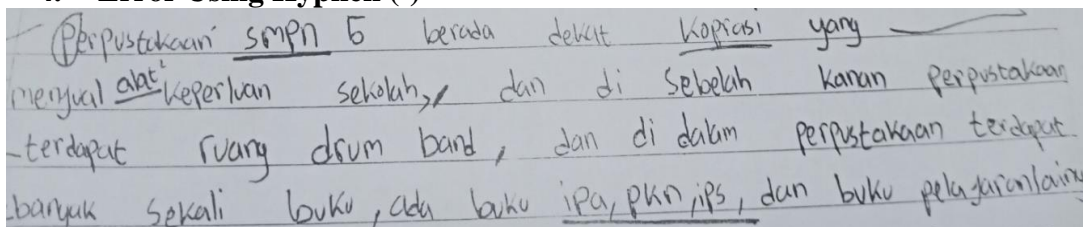 Error Using Hyphen (-)
Perpustakaan smpn 5 berada dekat kopiasi yang
menjual alat² keperluan sekolah, dan di sebelah kanan perpustakaan
terdapat ruang drum band, dan di dalam perpustakaan terdapat
banyak sekali buku, ada buku ipa, pkn, ips, dan buku pelajaran lainnya